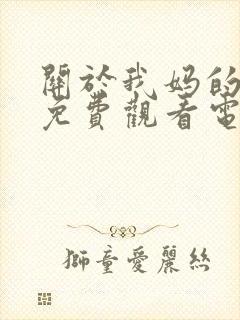 關於我妈的
免費觀看電
獅童愛麗絲